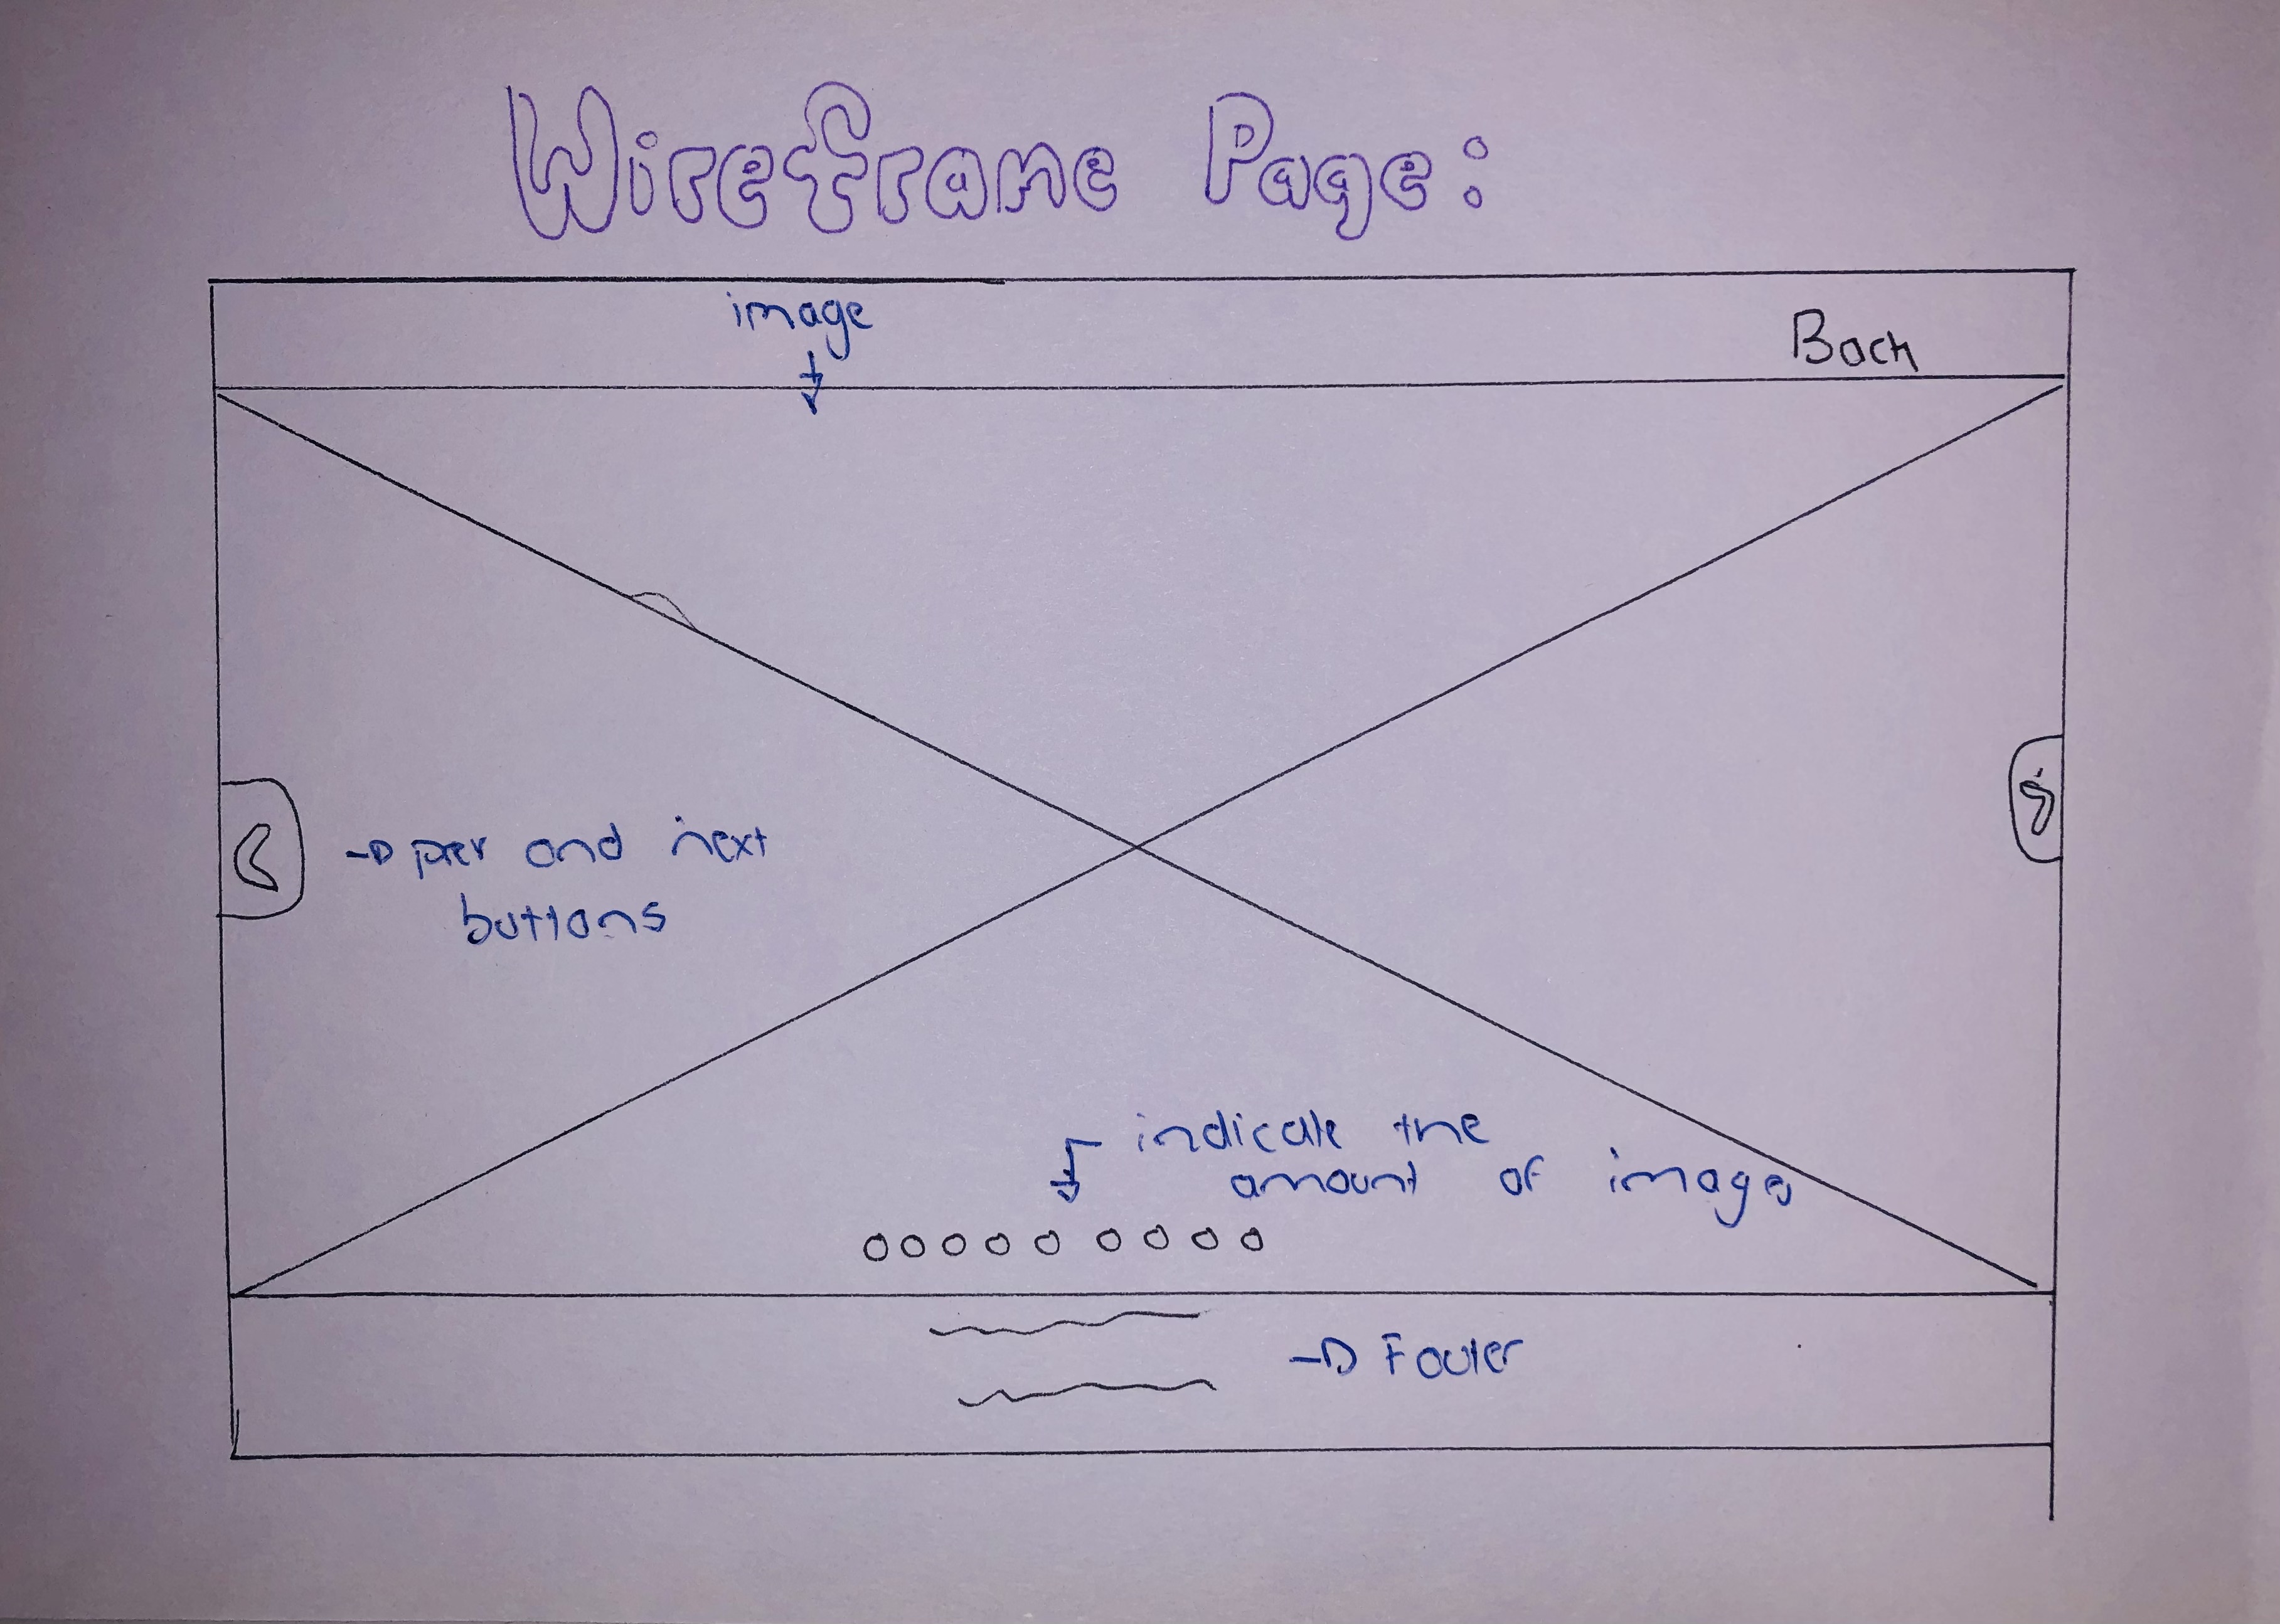 Wireframe Page:
image
Back
prev and next
buttons
indicate the
amount of images
Footer